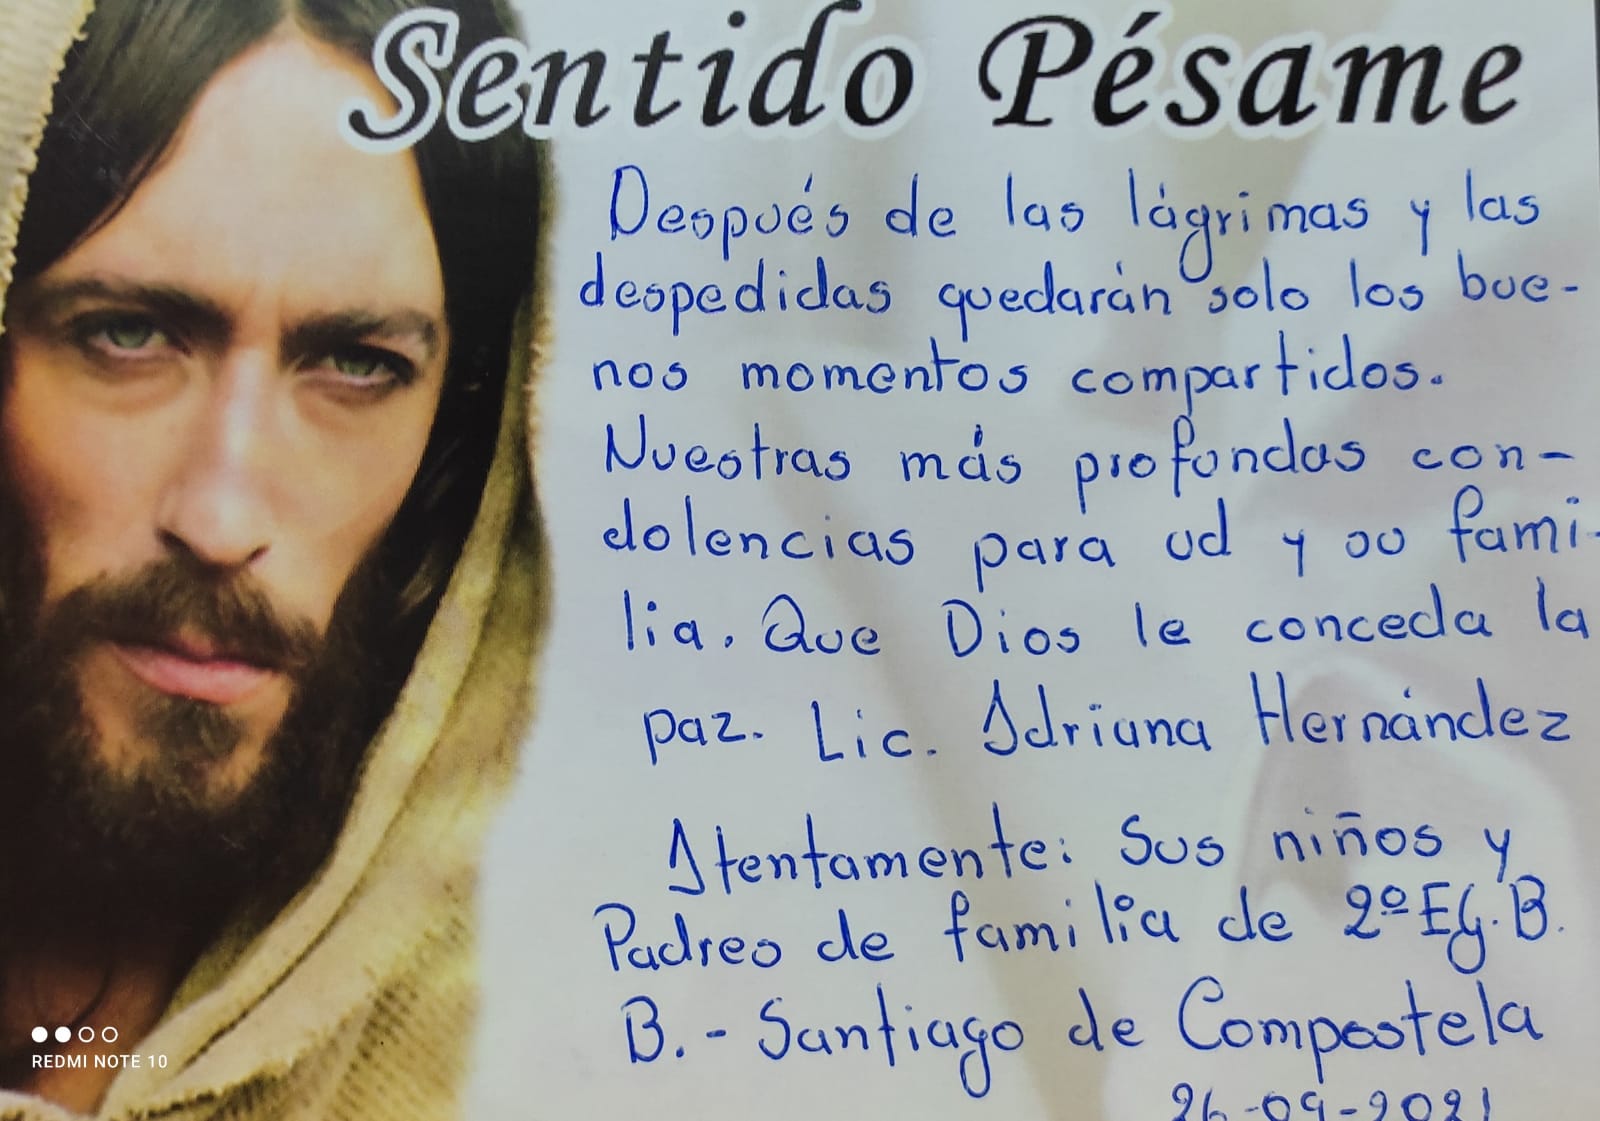 Sentido Pésame
Después de las lágrimas y las
despedidas quedarán solo los bue-
nos momentos compartidos.
Nuestras más profundas con-
dolencias para ud y su fami-
lia. Que Dios le conceda la
paz. Lic. Adriana Hernández
Atentamente: Sus niños y
Padres de familia de 2º E.G.B.
B.- Santiago de Compostela
26-09-2021
REDMI NOTE 10